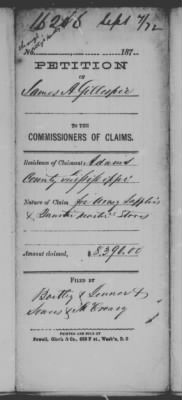 16208 Sept 7/72
No. 187
PETITION
OF
James A Gillespie
TO THE
COMMISSIONERS OF CLAIMS.
Residence of Claimant: Adams
County Mississippi
Nature of Claim for Army Supplies
& Quartermasters Stores
Amount claimed, $8,396.00
FILED BY
Bartley & Denver &
PRINTED AND SOLD BY
Powell, Ginck & Co., 632 F st., Wash'n, D. C